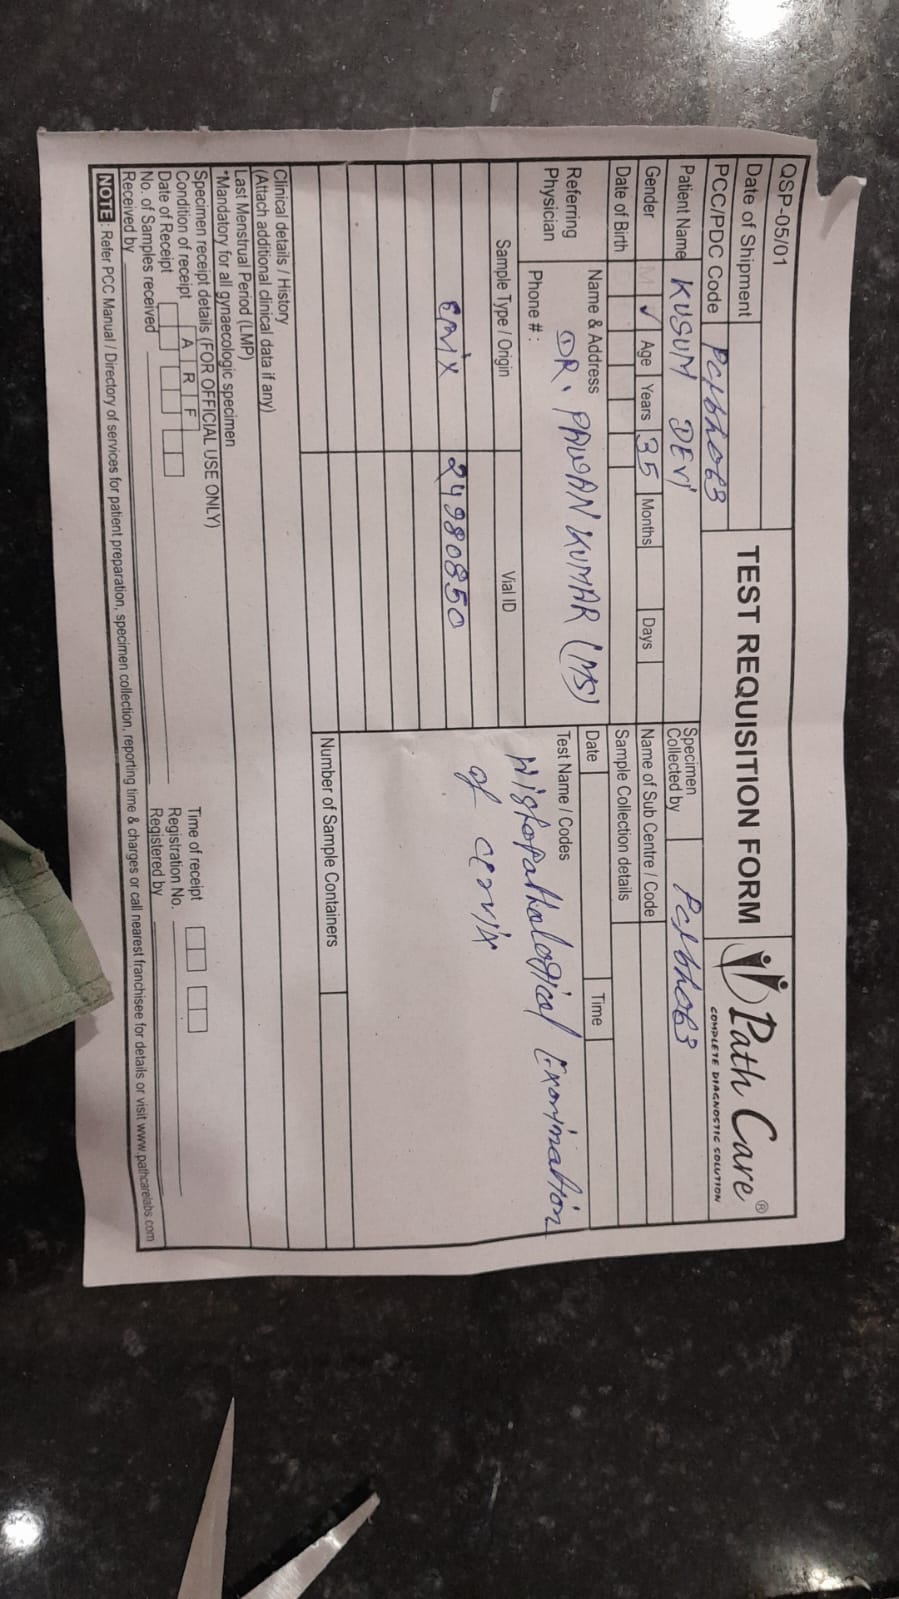 QSP-05/01
Date of Shipment
TEST REQUISITION FORM
Path Care®
COMPLETE DIAGNOSTIC SOLUTION
PCC/PDC Code
Patient Name KUSUM DEVI
Specimen Collected by
Gender M ✓ Age Years 35 Months Days
Name of Sub Centre / Code
Date of Birth
Sample Collection details
Date Time
Referring Physician
Name & Address
DR. PAWAN KUMAR (MS)
Phone #:
Test Name / Codes
Histopathological Examination
of cervix
Sample Type / Origin Vial ID
cervix 24980850
Number of Sample Containers
Clinical details / History
(Attach additional clinical data if any)
Last Menstrual Period (LMP)
*Mandatory for all gynaecologic specimen
Specimen receipt details (FOR OFFICIAL USE ONLY)
Condition of receipt A R F
Date of Receipt Time of receipt
No. of Samples received Registration No.
Received by Registered by
NOTE : Refer PCC Manual / Directory of services for patient preparation, specimen collection, reporting time & charges or call nearest franchisee for details or visit www.pathcarelabs.com